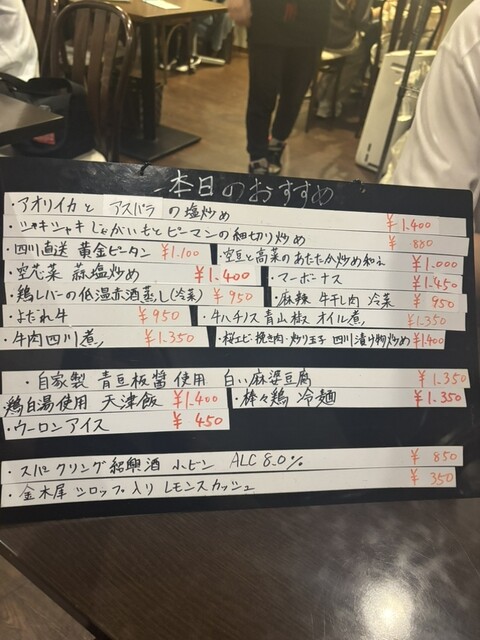 本日のおすすめ
・アオリイカと アスパラ の塩炒め ¥1.400
・シャキシャキ じゃがいもとピーマンの細切り炒め ¥880
・四川直送 黄金ピータン ¥1.100 ・空豆と高菜のあたたか炒め和え ¥1.000
・空芯菜 蒜塩炒め ¥1.400 ・マーボーナス ¥1.450
・鶏レバーの低温赤酒蒸し(冷菜) ¥950 ・麻辣 牛干し肉 冷菜 ¥950
・よだれ牛 ¥950 ・牛ハチノス 青山椒 オイル煮 ¥1.350
・牛肉四川煮 ¥1.350 ・桜エビ・挽き肉・炒り玉子 四川漬け物炒め ¥1.400
・自家製 青豆板醤 使用 白い麻婆豆腐 ¥1.350
・鶏白湯使用 天津飯 ¥1.400 ・棒々鶏 冷麺 ¥1.350
・ウーロンアイス ¥450
・スパークリング紹興酒 小ビン ALC 8.0% ¥850
・金木犀 シロップ入り レモンスカッシュ ¥350